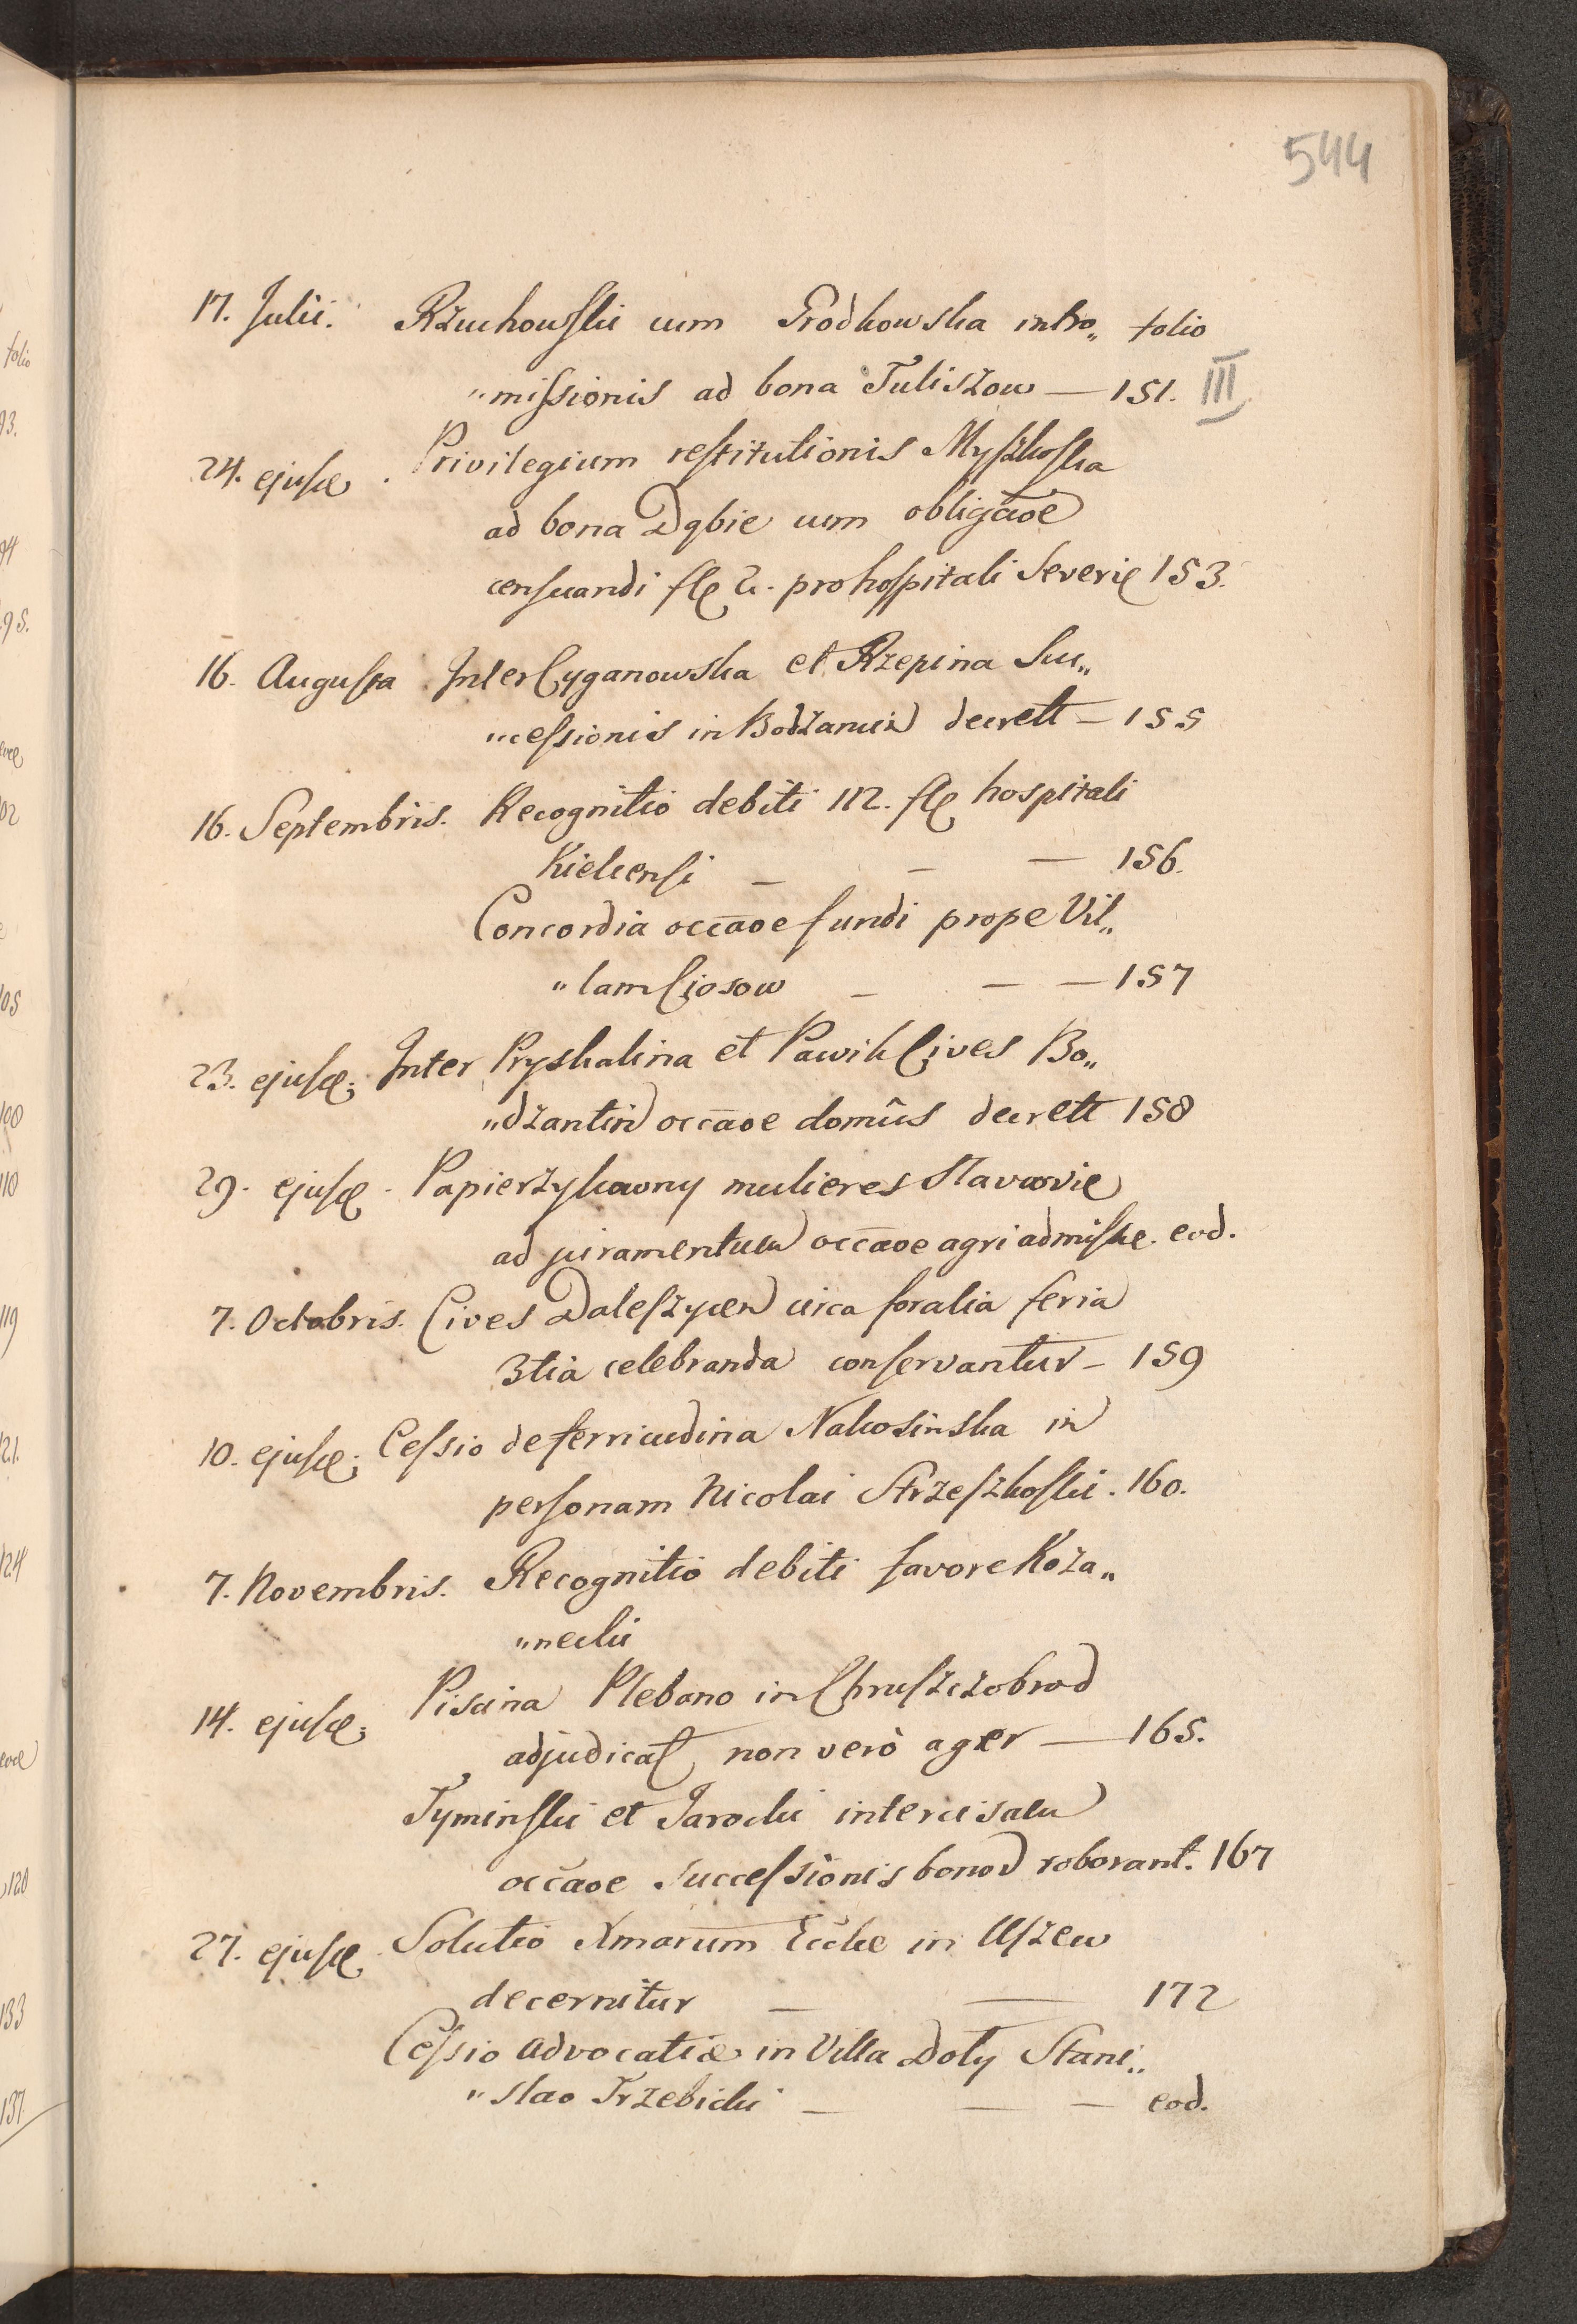 544
17. Julii. Rżuchowskii cum Grodkowska intro„ folio
„missionis ad bona Tuliszow — 151. III
24. ejusd. Privilegium restitutionis Myszkoska
ad bona Dąbie cum obligaõe
censuandi fl. 2. pro hospitali Severię 153.
16. Augusta Inter Cyganowska et Rzepina Suc„
„cessionis in Bodzancin decrett — 155
16. Septembris. Recognitio debiti 112. fl. hospitali
Kielcensi — — — 156.
Concordia occãoe fundi prope Vil„
„lam Ciosow — — — 157
23. ejusd. Inter Pryskalina et Pawik Cives Bo„
„dzantin occãoe domûs decrett 158
29. ejusd. Papierzykowny mulieres Slavcovię
ad juramentum occãoe agri admissę. eod.
7. Octobris. Cives Daleszycen circa foralia feria
3tia celebranda conservantur — 159
10. ejusd. Cessio de ferricudina Nakosinska in
personam Nicolai Strzeszkoskii. 160.
7. Novembris. Recognitio debiti favore Koza„
„neckii
14. ejusd. Piscina Plebano in Chruszczobrod
adjudicat, non verò ager — 165.
Tyminskii et Jarockii intercisam
occãoe Successionis bonor roborant. 167
27. ejusd. Solutio Xmarum Ecclæ in Uszew
decernitur — — 172
Cessio advocatiæ in Villa Doły Stani„
„slao Trzebicki — — — eod.